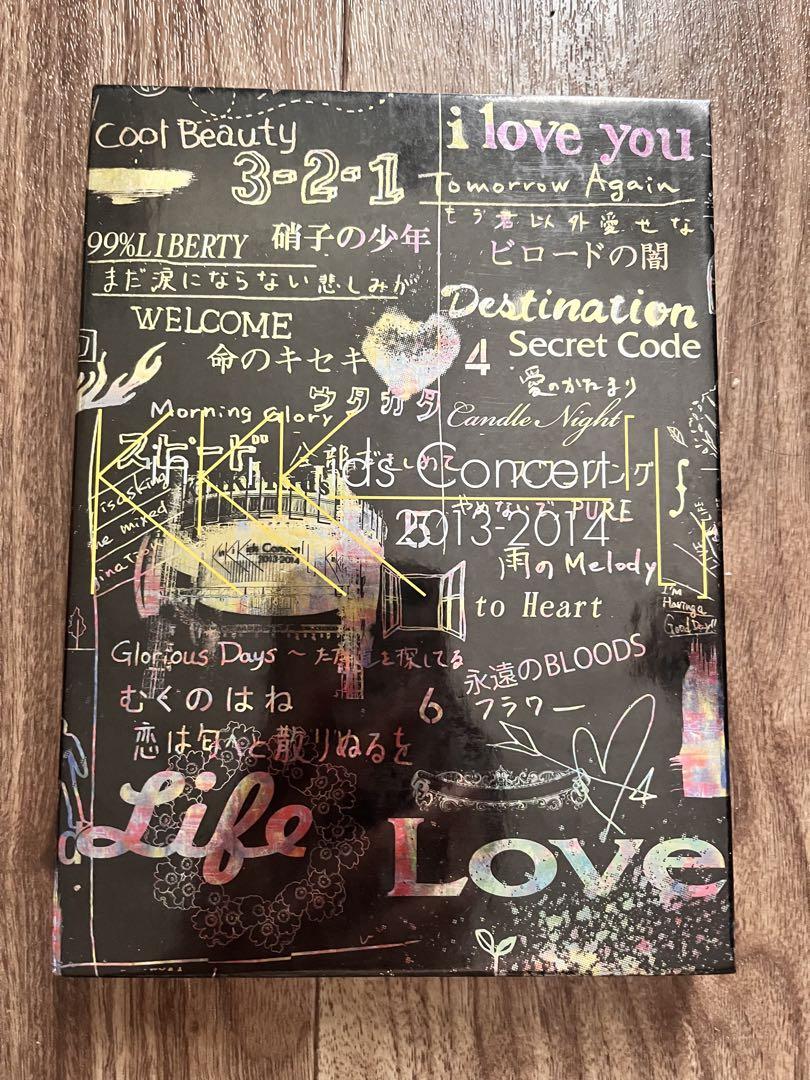 Cool Beauty
i love you
3-2-1
Tomorrow Again
もう君以外愛せな
99%LIBERTY
硝子の少年
ビロードの闇
まだ涙にならない悲しみが
WELCOME
Destination
命のキセキ
4
Secret Code
愛のかたまり
Morning Glory
ウタカタ
Candle Night
スピード
全部だきしめて
スワンソング
KinKi Kids Concert
2013-2014
5
やめないで PURE
KinKi Kids Concert
2013-2014
KinKi
雨のMelody
to Heart
I'm
Having a
Good Day!!
Glorious Days ～ただ道を探してる
永遠のBLOODS
むくのはね
6
フラワー
恋は匂へと散りぬるを
Life
Love